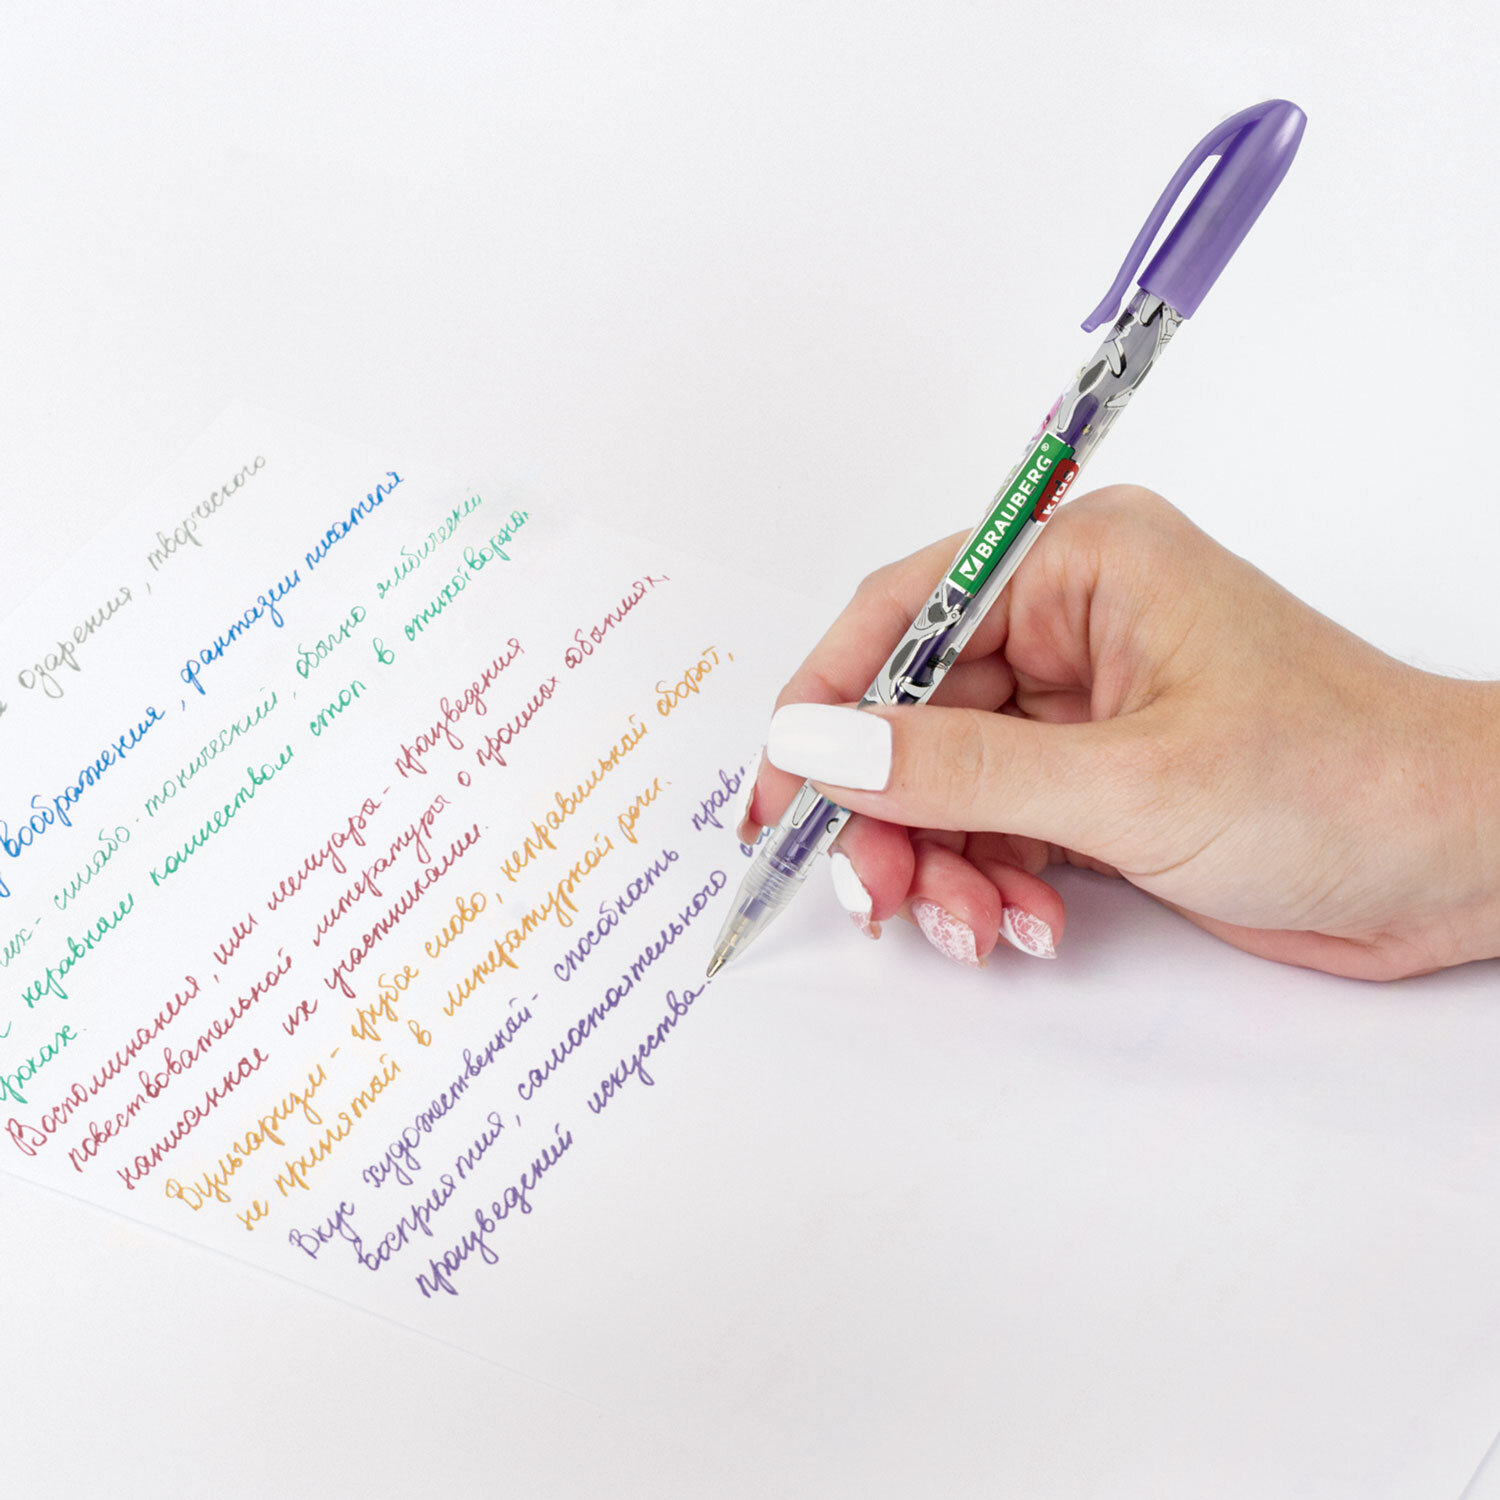 озарения, творческого
воображения, фантазии писателя
силлабо-тонический, обычно ямбический
неравным количеством стоп в
Воспоминания, или мемуары - произведения
повествовательной литературы о прошлых событиях,
написанное их участниками.
Вульгаризм - грубое слово, неправильный оборот,
не принятой в литературной речи.
Вкус художественный - способность
восприятия, самостоятельного
произведений искусства.
BRAUBERG®
Kids